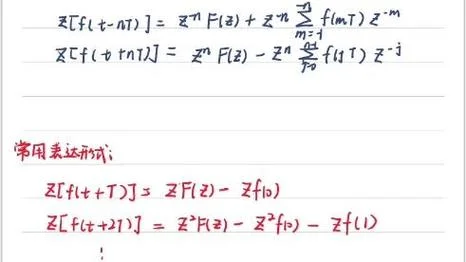 Z[f(t-nT)] = Z⁻ⁿF(z) + Z⁻ⁿ ∑_{m=-1}^{-n} f(mT) Z⁻ᵐ
Z[f(t+nT)] = ZⁿF(z) - Zⁿ ∑_{j=0}^{n-1} f(jT) Z⁻ʲ
常用表达形式:
Z[f(t+T)] = ZF(z) - Zf(0)
Z[f(t+2T)] = Z²F(z) - Z²f(0) - Zf(1)
⋮